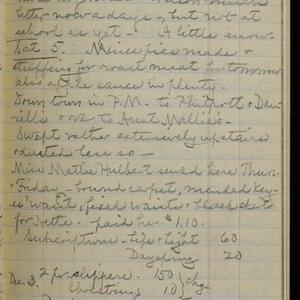 better now a days, but not at
school as yet - A little snow
Sat. 5. Mince pies made &
stuffing for roast meat for tomorrow
also apple sauce in plenty.
Down town in P.M. to Philpott &
& over to Aunt Mallie's
Swept rather extensively upstairs
& dusted less so -
Miss Mattie Hulbert sewed here Thurs
& Friday - bound carpet, mended
waist, fixed waists & black skirt
for Jette - paid her $1.10.
Subscriptions - Life & Light 60
Dayspring 20
Dec. 3. 2 pr slippers. 150 } chg
Shoestrings 10